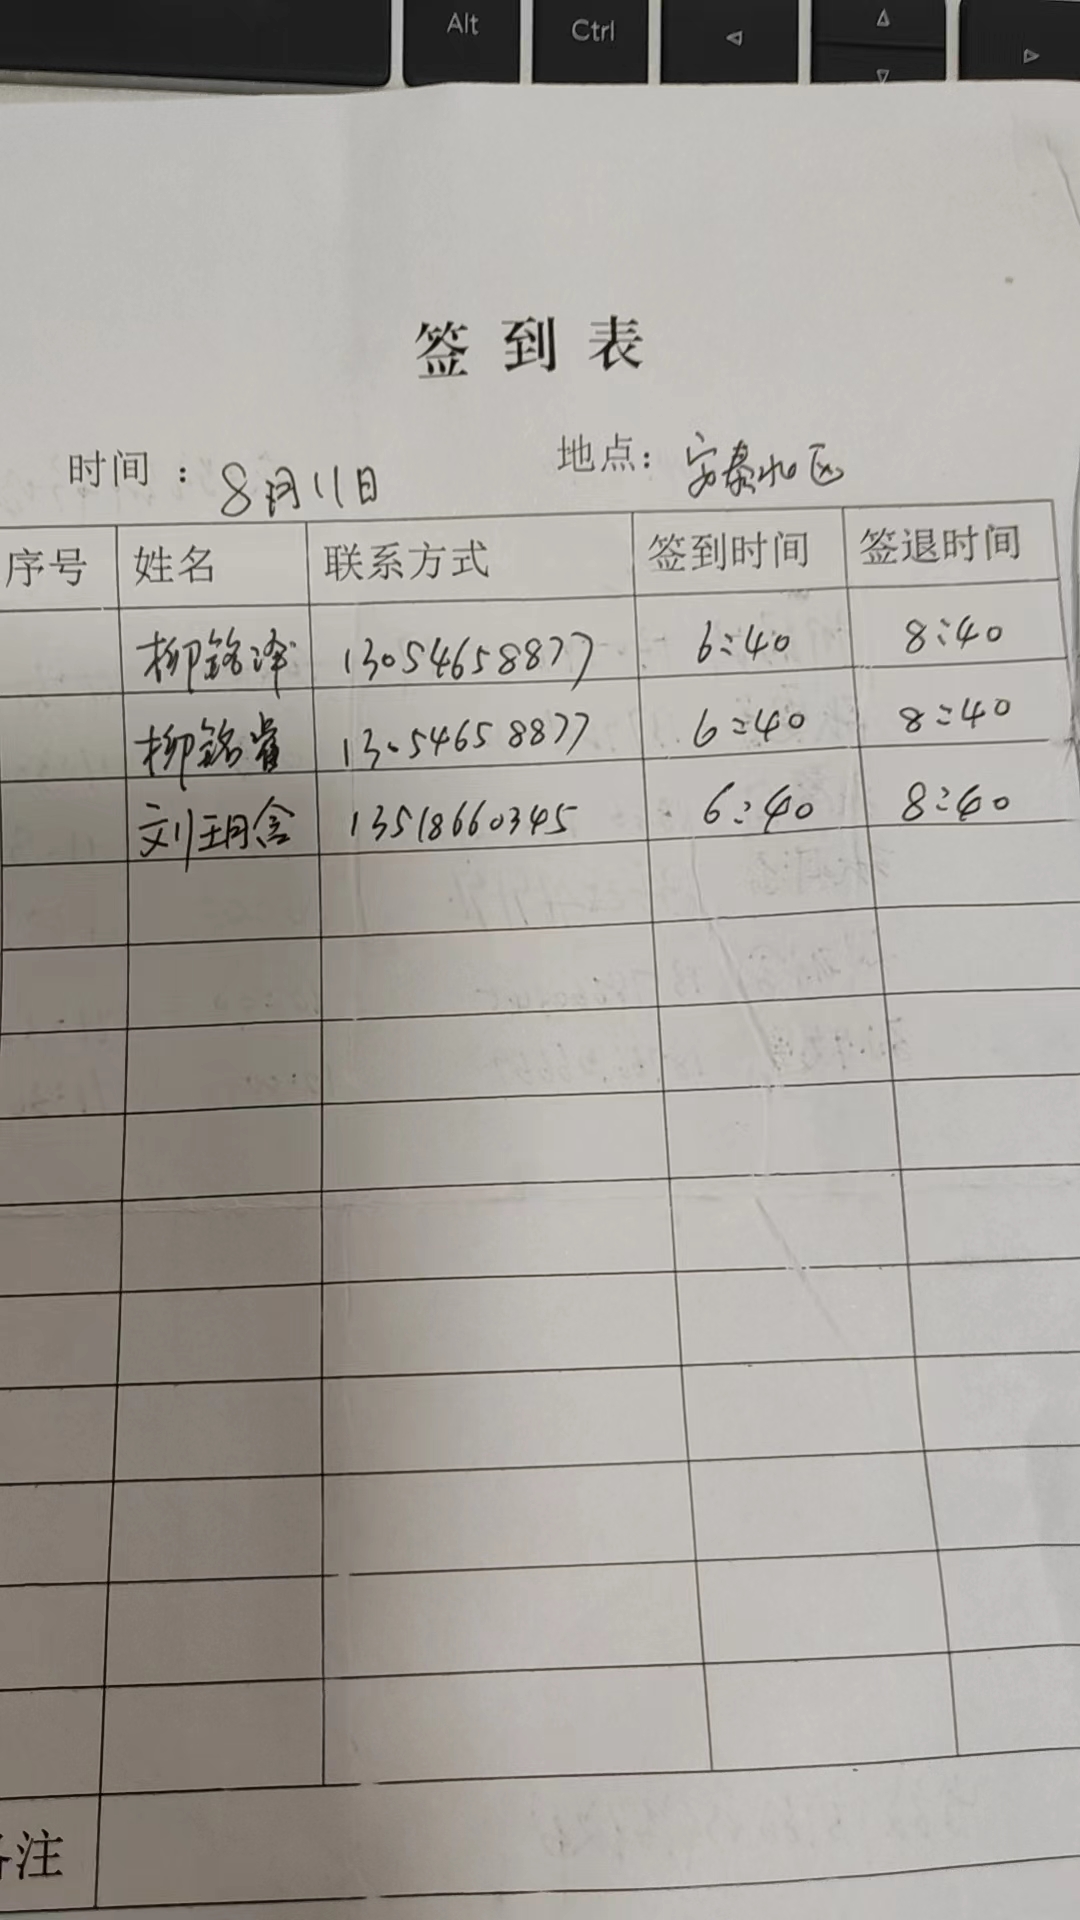 Alt Ctrl
签到表
时间：8月11日 地点：安泰北区
序号 姓名 联系方式 签到时间 签退时间
柳铭泽 13054658877 6:40 8:40
柳铭睿 13054658877 6:40 8:40
刘玥含 13518660345 6:40 8:40
备注